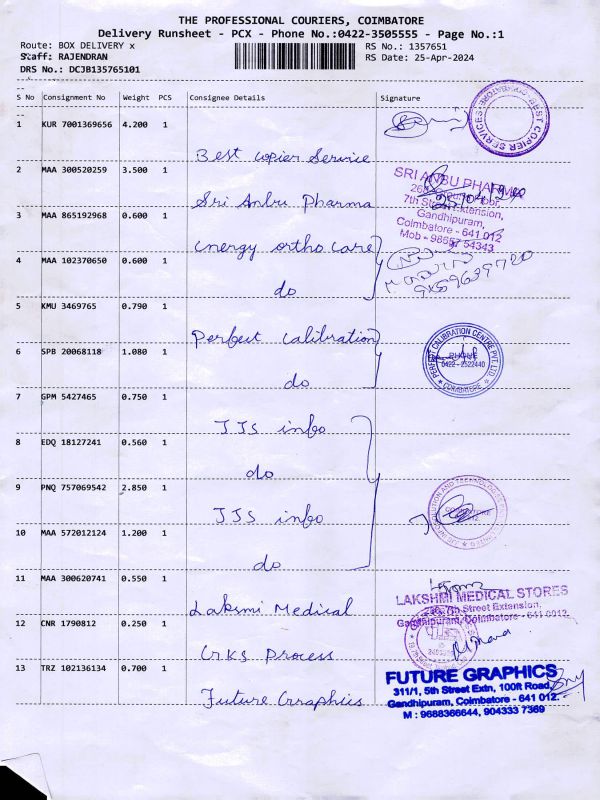 THE PROFESSIONAL COURIERS, COIMBATORE
Delivery Runsheet - PCX - Phone No.:0422-3505555 - Page No.:1
Route: BOX DELIVERY x
Staff: RAJENDRAN
DRS No.: DCJB135765101
RS No.: 1357651
RS Date: 25-Apr-2024
S No Consignment No Weight PCS Consignee Details Signature
1 KUR 7001369656 4.200 1
Best Copier Service
BEST COPIER SERVICES
2 MAA 300520259 3.500 1
Sri Anbu Pharma
SRI ANBU PHARMA
7th Street Extension,
Gandhipuram,
Coimbatore - 641 012
Mob - 98657 54343
3 MAA 865192968 0.600 1
energy ortho care
4 MAA 102370650 0.600 1
do
5 KMU 3469765 0.790 1
Perfect Calibration
6 SPB 20068118 1.080 1
do
PERFECT CALIBRATION CENTRE PVT. LTD
PHONE
0422-2522440
COIMBATORE
7 GPM 5427465 0.750 1
JJS info
8 EDQ 18127241 0.560 1
do
9 PNQ 757069542 2.850 1
JJS info
10 MAA 572012124 1.200 1
do
11 MAA 300620741 0.550 1
Laksmi Medical
LAKSHMI MEDICAL STORES
7th Street Extension,
Gandhipuram, Coimbatore - 641 012.
12 CNR 1790812 0.250 1
CRKS Process
13 TRZ 102136134 0.700 1
Future Graphics
FUTURE GRAPHICS
311/1, 5th Street Extn, 100ft Road,
Gandhipuram, Coimbatore - 641 012.
M : 9688366644, 904333 7369